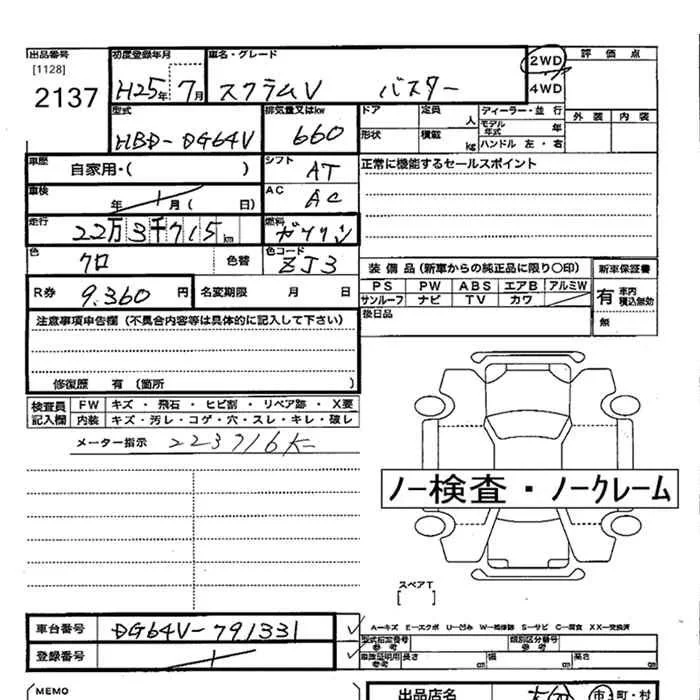 出品番号 初度登録年月 車名・グレード 2WD 評価点
[1128] H25年 7月 スクラムV バスター 4WD
2137
型式 排気量又はkw ドア 定員 人 ディーラー・並行 外装 内装
HBD-DG64V 660 形状 積載 kg モデル年式 年
ハンドル 左・右
車歴 自家用・( ) シフト AT 正常に機能するセールスポイント
車検 年 月( 日) AC AC
走行 22万3千715km 燃料 ガソリン
色 クロ 色替 色コード ZJ3 装備品(新車からの純正品に限り〇印) 新車保証書
PS PW ABS エアB アルミW 有 車内 積込無効
R券 9.360円 名変期限 月 日 サンルーフ ナビ TV カワ
後日品 無
注意事項申告欄(不具合内容等は具体的に記入して下さい)
修復歴 有〔箇所 〕
検査員 FW キズ・飛石・ヒビ割・リペア跡・X要
記入欄 内装 キズ・汚レ・コゲ・穴・スレ・キレ・破レ
メーター指示 223716K
ノー検査・ノークレーム
スペアT
[ ]
車台番号 DG64V-791331 A—キズ E—エクボ U—凹み W—補修跡 S—サビ C—腐食 XX—交換済
型式指定番号 参考 類別区分番号 参考
登録番号 車庫証明用 参考 長さ cm 幅 cm 高さ cm
MEMO 出品店名 市・町・村